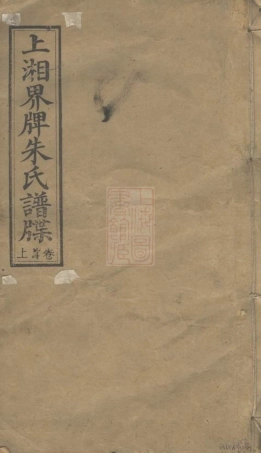 上湘界牌朱氏譜牒
卷首上